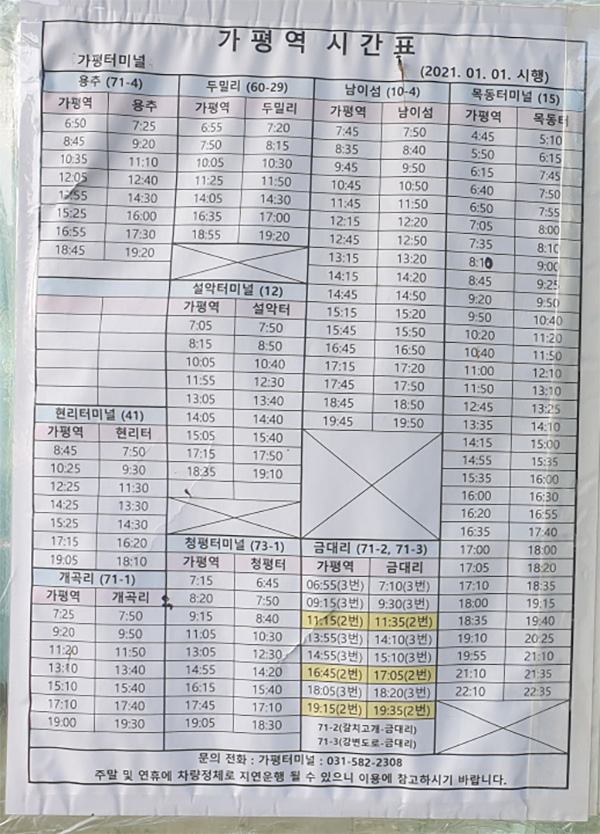 가평역 시간표
가평터미널
(2021. 01. 01. 시행)
용추 (71-4)
가평역 용추
6:50 7:25
8:45 9:20
10:35 11:10
12:05 12:40
14:30
15:25 16:00
16:55 17:30
18:45 19:20
현리터미널 (41)
가평역 현리터
8:45 7:50
10:25 9:30
12:25 11:30
14:25 13:30
15:25 14:30
17:15 16:20
19:05 18:10
개곡리 (71-1)
가평역 개곡리
7:25 7:50
9:20 9:50
11:20 11:50
13:10 13:40
15:10 15:40
17:10 17:40
19:00 19:30
두밀리 (60-29)
가평역 두밀리
6:55 7:20
7:50 8:15
10:05 10:30
11:25 11:50
14:05 14:30
16:35 17:00
18:55 19:20
설악터미널 (12)
가평역 설악터
7:05 7:50
8:15 8:50
10:05 10:40
11:55 12:30
13:05 13:40
14:05 14:40
15:05 15:40
17:15 17:50
18:35 19:10
청평터미널 (73-1)
가평역 청평터
7:15 6:45
8:20 7:50
9:15 8:40
11:05 10:30
13:05 12:30
14:55 14:20
16:15 15:40
17:45 17:10
19:05 18:30
남이섬 (10-4)
가평역 남이섬
7:45 7:50
8:35 8:40
9:45 9:50
10:45 10:50
11:45 11:50
12:15 12:20
12:45 12:50
13:15 13:20
14:15 14:20
14:45 14:50
15:15 15:20
15:45 15:50
16:45 16:50
17:15 17:20
17:45 17:50
18:45 18:50
19:45 19:50
금대리 (71-2, 71-3)
가평역 금대리
06:55(3번) 7:10(3번)
09:15(3번) 9:30(3번)
11:15(2번) 11:35(2번)
13:55(3번) 14:10(3번)
14:55(3번) 15:10(3번)
16:45(2번) 17:05(2번)
18:05(3번) 18:20(3번)
19:15(2번) 19:35(2번)
71-2(갈치고개-금대리)
71-3(강변도로-금대리)
목동터미널 (15)
가평역 목동터
4:45 5:10
5:50 6:15
6:15 7:45
6:40 7:50
6:50 7:55
7:05 8:00
7:35 8:10
8:10 9:00
8:45 9:25
9:20 9:50
9:50 10:40
10:20 11:20
10:40 11:50
11:00 12:10
11:50 13:10
12:45 13:25
13:35 14:10
14:15 15:00
14:55 15:35
15:35 16:00
16:00 16:30
16:20 16:55
16:35 17:40
17:00 18:00
17:05 18:20
17:10 18:35
18:00 19:15
18:35 19:40
19:10 20:25
19:55 21:10
21:10 21:35
22:10 22:35
문의 전화 : 가평터미널 : 031-582-2308
주말 및 연휴에 차량정체로 지연운행 될 수 있으니 이용에 참고하시기 바랍니다.